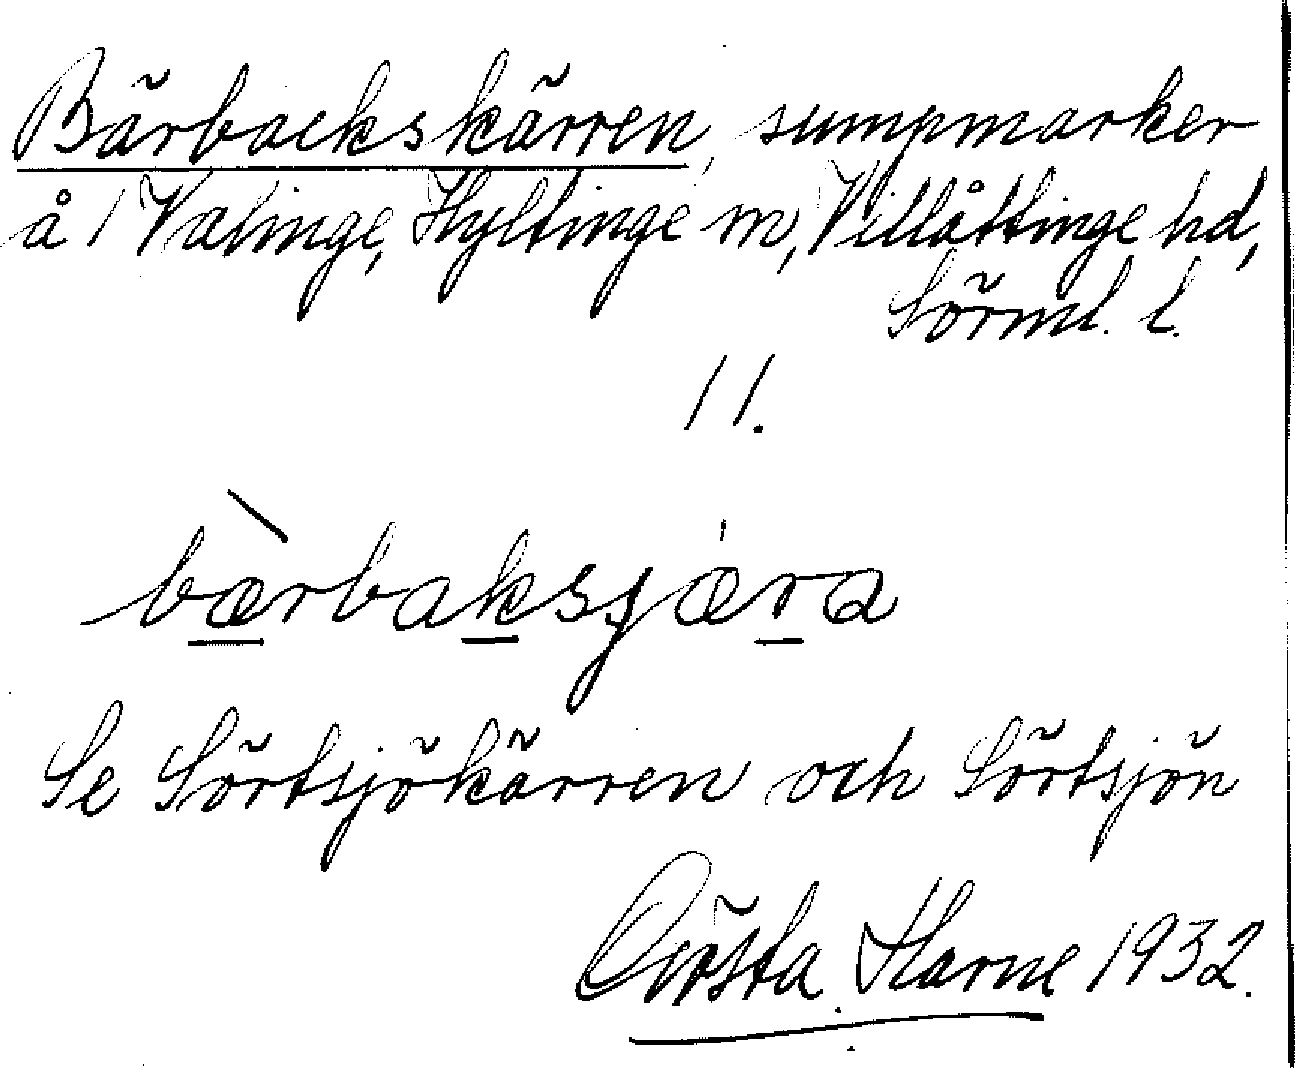 Bärbackskärren, sumpmarker
å 1 Valinge, Hyltinge sn, Villåttinge hd,
Sörml. l.
11.
bærbaksjæra
Se Sörtsjökärren och Sörtsjön
Gösta Harne 1932.